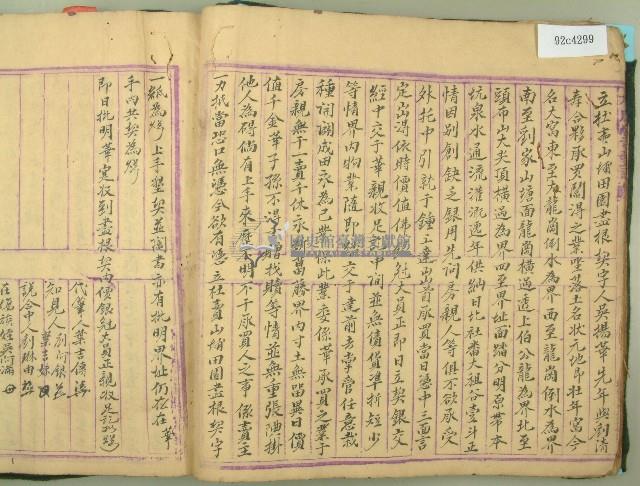 92c4299
立杜賣山埔田園盡根契字人吳揚華先年與劉清
壽合夥承買鬮得之業坐落土名狀元地即壯年窩今
名大窩東至龍崗倒水為界西至龍崗倒水為界
南至劉家山塘面龍崗橫過透上伯公龍為界北至
頭前山大尖頂橫過為界四至界址面踏分明原帶本
坑泉水通流灌溉逐年供納日北社番大租谷壹斗正
情因別創缺乏銀用先問房親人等俱不欲承受
外托中引就于鍾 達 首承買當日憑中三面言
定 時值價佛銀 大員正即日立契銀交
經中交于華親收足 中間並無債貨準折短少
等情界內物業隨即 交于達前去掌管任意栽
種開闢成田永為己業 此業委係華承買之業于
房親無干一賣千休永斷葛藤界內寸土無留異日價
值千金華子孫不得 贖等情並無重張陋掛
他人為碍倘有上手來歷不明不干承買人之事係賣主
一力抵當恐口無憑今欲有憑立杜賣山埔田園盡根契字
一紙為炤 上手墾契並鬮書亦有批明界址仍存在華
手內共契為炤
即日批明華寔收到盡根契內價銀 大員正親收足訖批炤
代筆人葉吉
知見人劉阿銀
葉吉
說合中人劉琳由
在塲 吳 母